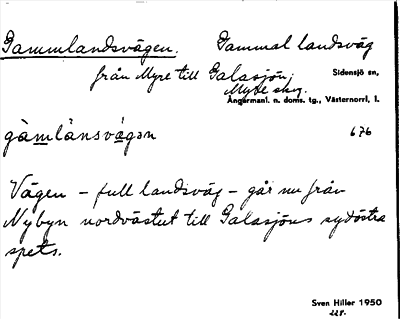 Gammlandsvägen. Gammal landsväg
från Myre till Galasjön. Sidensjö sn,
Myre skog.
Ångermanl. n. doms. tg., Västernorrl. l.
gàmlànsvágɘn 676
Vägen – full landsväg – går nu från
Nybyn nordvästut till Galasjöns sydöstra
spets.
Sven Hiller 1950